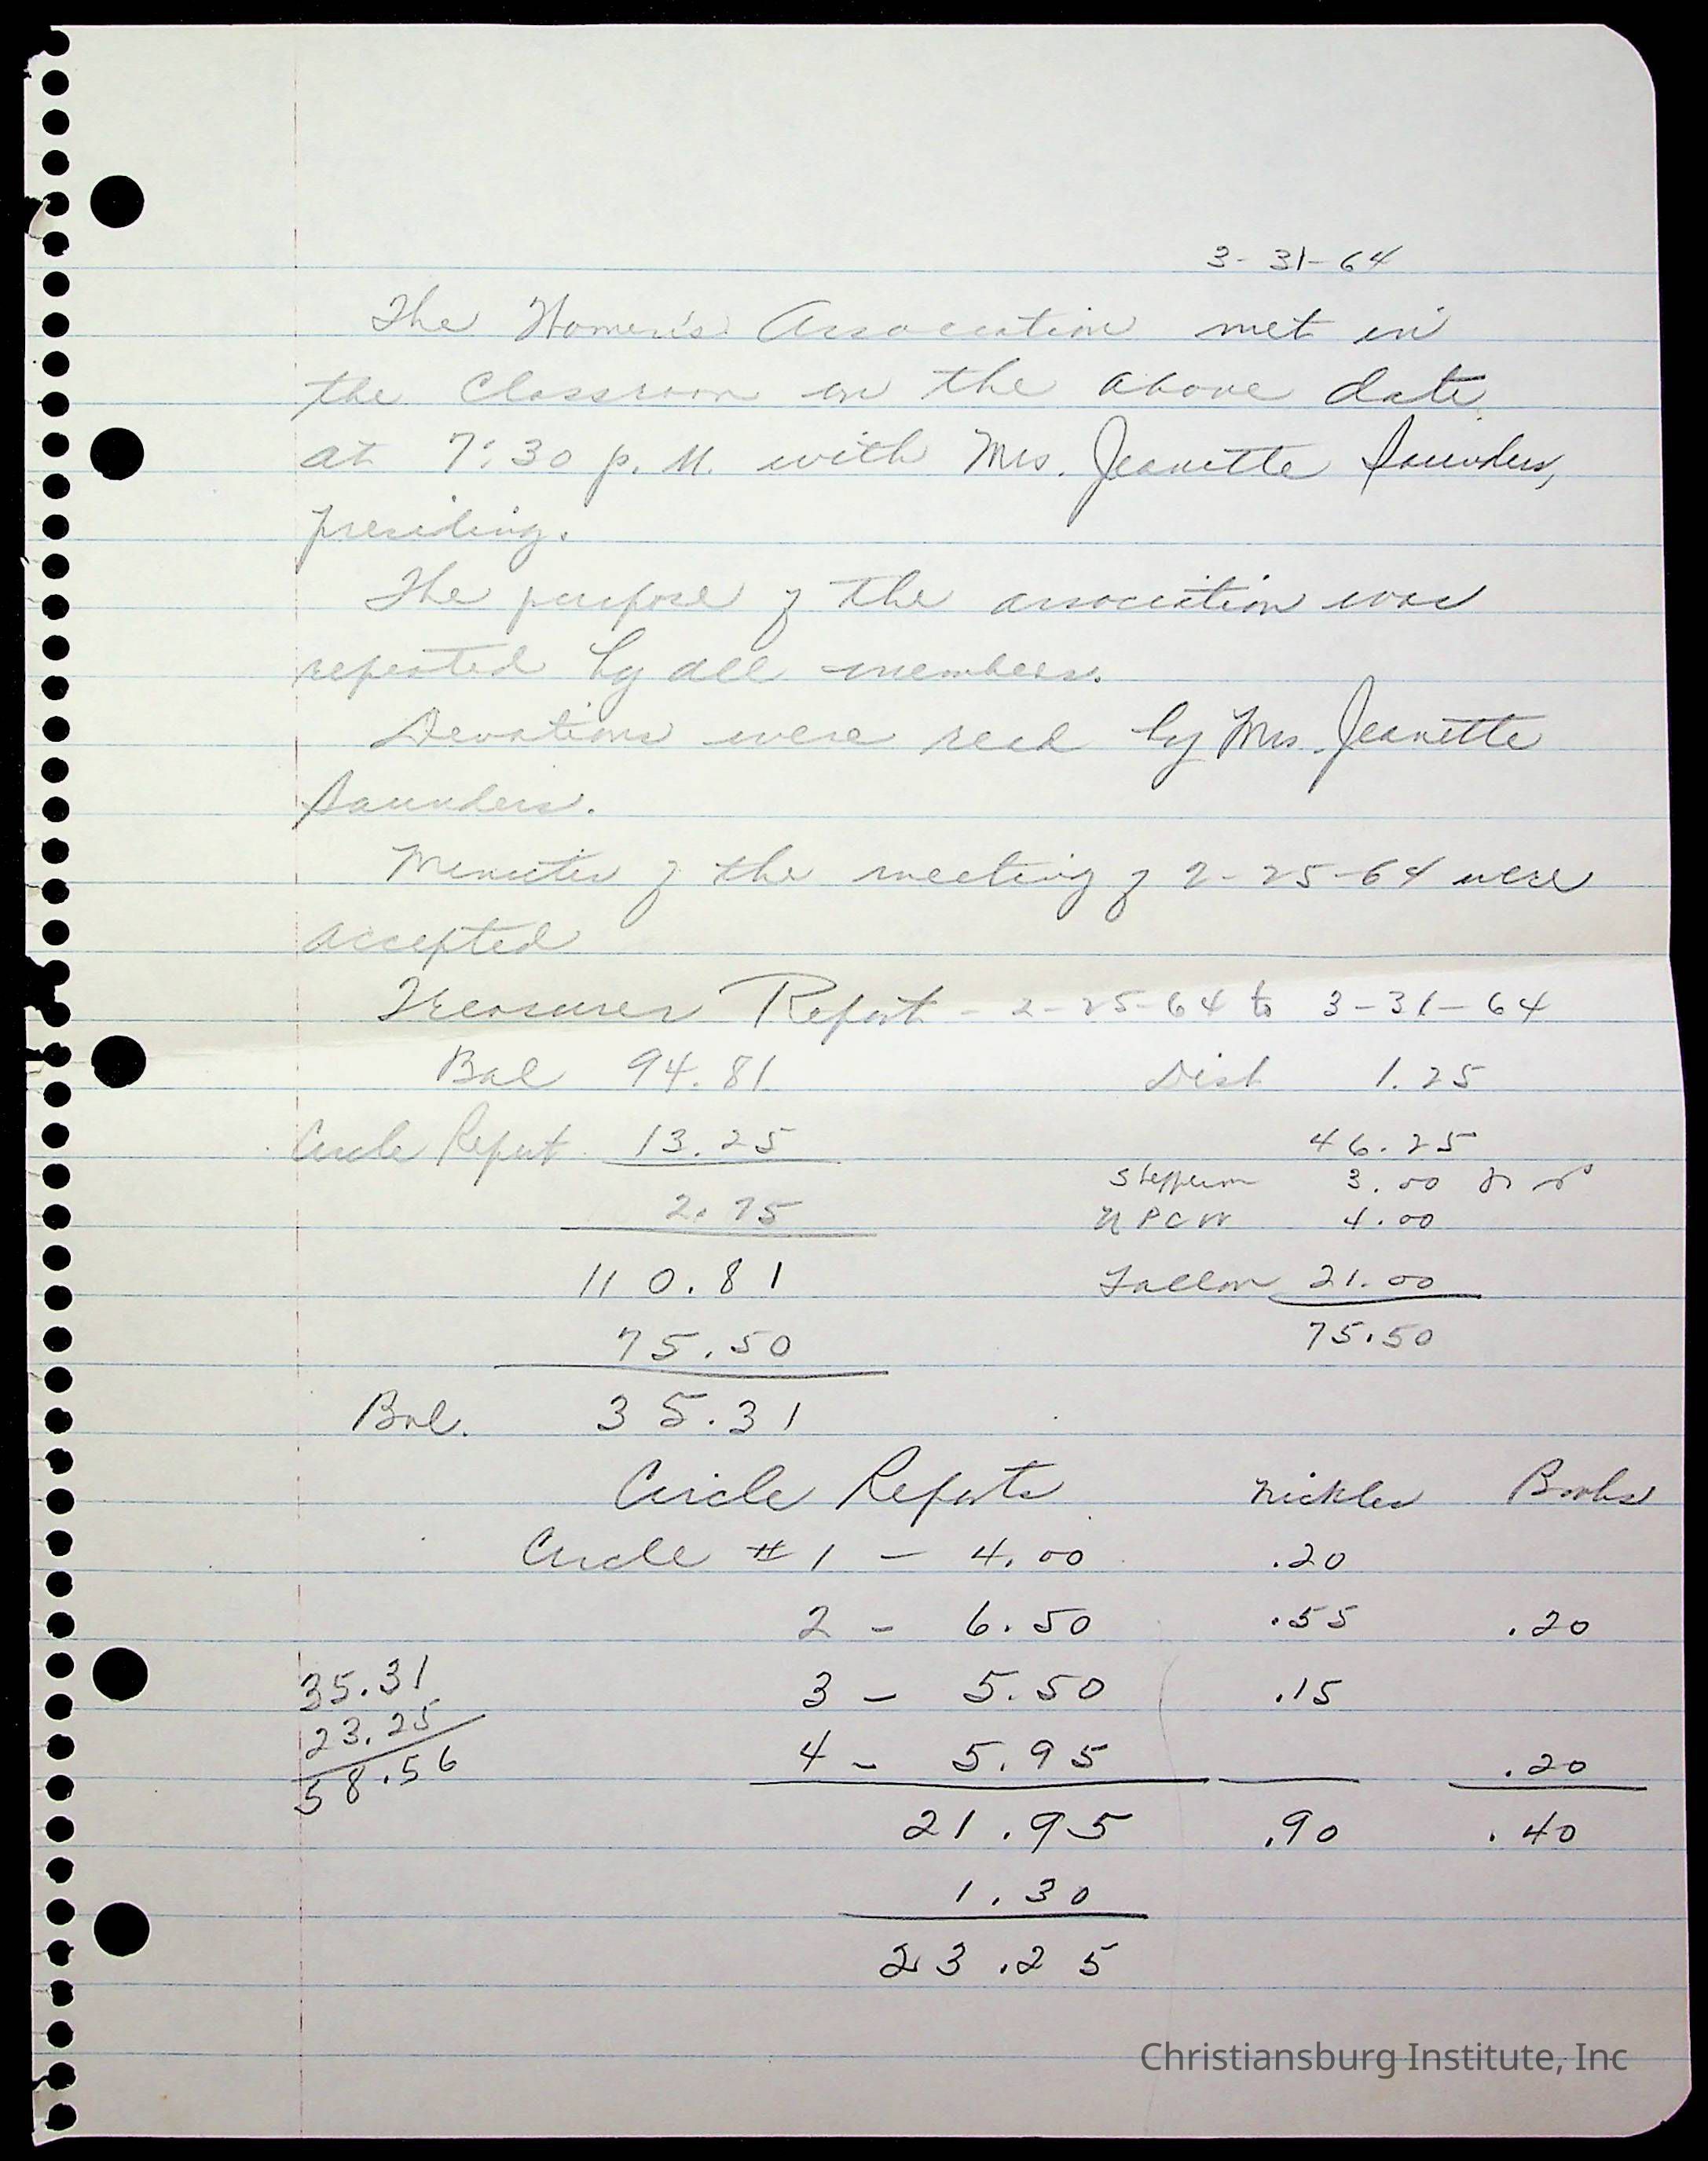 3-31-64
The Women's Association met in
the Classroom on the above date
at 7:30 p.M. with Mrs. Jeanette Saunders,
presiding.
The purpose of the association was
repeated by all members.
Devotions were read by Mrs. Jeanette
Saunders.
Minutes of the meeting of 2-25-64 were
accepted
Treasurer Report - 2-25-64 to 3-31-64
Bal 94.81 Dist 1.25
Circle Report 13.25 46.25
3.00
2.75 4.00
110.81 21.00
75.50 75.50
Bal. 35.31
Circle Reports Nickles Books
Circle #1 - 4.00 .20
2 - 6.50 .55 .20
35.31 3 - 5.50 .15
23.25
58.56 4 - 5.95 .20
21.95 .90 .40
1.30
23.25
Christiansburg Institute, Inc